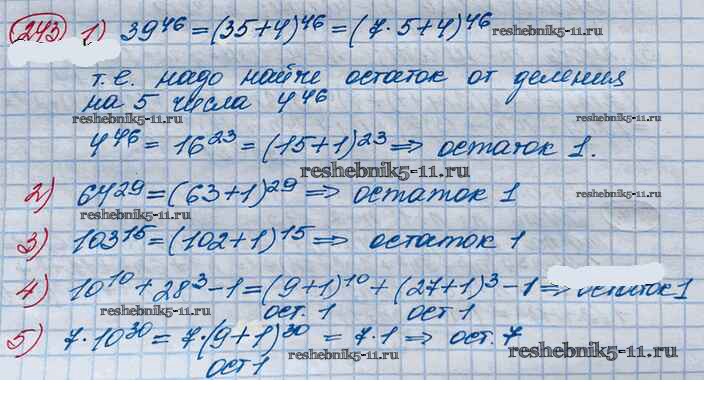 243 1) 39^46 = (35+4)^46 = (7·5+4)^46
reshebnik5-11.ru
т.е. надо найти остаток от деления
на 5 числа 4^46
reshebnik5-11.ru reshebnik5-11.ru
4^46 = 16^23 = (15+1)^23 ⇒ остаток 1.
reshebnik5-11.ru
2) 64^29 = (63+1)^29 ⇒ остаток 1
reshebnik5-11.ru reshebnik5-11.ru
3) 103^15 = (102+1)^15 ⇒ остаток 1
4) 10^10 + 28^3 - 1 = (9+1)^10 + (27+1)^3 - 1 ⇒ остаток 1
reshebnik5-11.ru ост. 1 ост 1 reshebnik5-11.ru
5) 7·10^30 = 7·(9+1)^30 = 7·1 ⇒ ост. 7
reshebnik5-11.ru reshebnik5-11.ru
ост 1
reshebnik5-11.ru